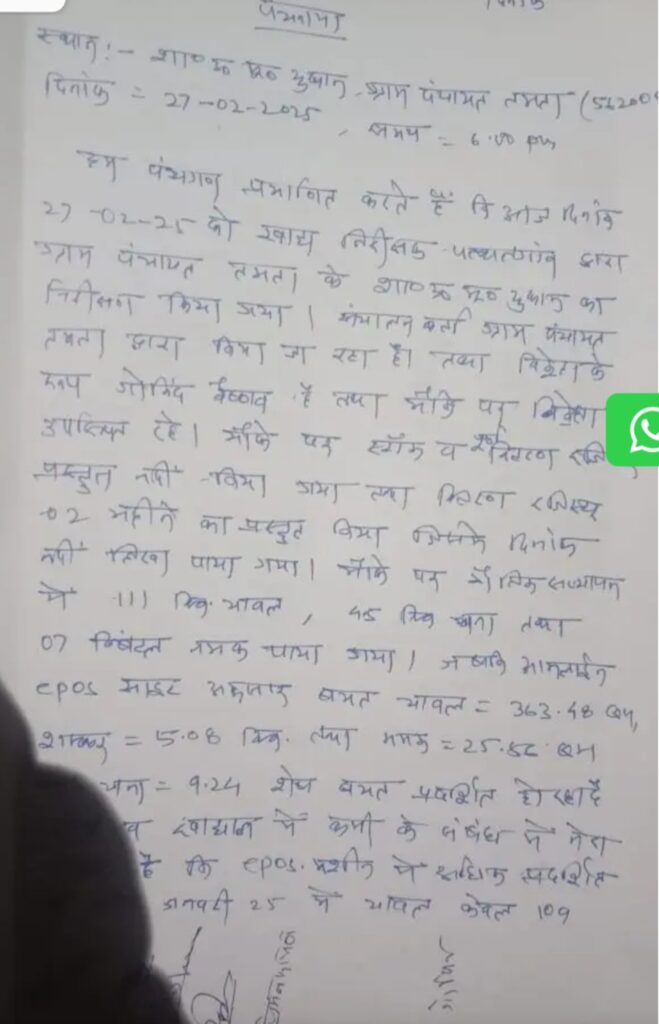 पंचनामा
दिनांक
स्थान :- शा० उ० मू० दुकान, ग्राम पंचायत तमता (56200
दिनांक = 27-02-2025, समय = 6:00 pm
हम पंचगण प्रमाणित करते हैं कि आज दिनांक
27-02-25 को खाद्य निरीक्षक पत्थलगांव द्वारा
ग्राम पंचायत तमता के शा० उ० मू० दुकान का
निरीक्षण किया गया। संचालनकर्ता ग्राम पंचायत
तमता द्वारा किया जा रहा है। तथा विक्रेता के
रूप गोविंद वैष्णव है तथा मौके पर विक्रेता
उपस्थित रहे। मौके पर स्टॉक व वितरण
प्रस्तुत नहीं किया गया तथा वितरण रजिस्टर
02 महीने का प्रस्तुत किया जिसके दिनांक
नहीं लिखा पाया गया। मौके पर भौतिक सत्यापन
में 111 क्वि चावल, 45 क्वि चना तथा
07 क्विंटल नमक पाया गया। जबकि आनलाईन
epos साइट अनुसार बचत चावल = 363.48 Qtl,
शक्कर = 5.08 क्वि. तथा नमक = 25.86 Qtl
चना = 9.24 शेष बचत प्रदर्शित हो रहा है
व खाद्यान में कमी के संबंध में मेरा
है कि epos मशीन में अधिक प्रदर्शित
जनवरी 25 में चावल केवल 109